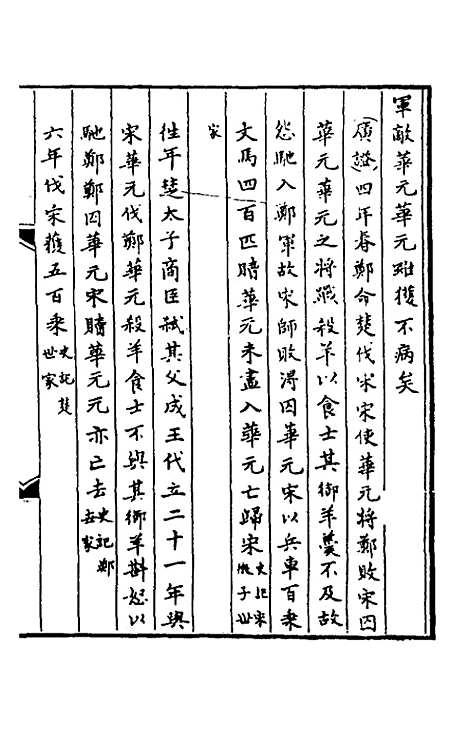 軍敵華元華元雖獲不病矣
(廣證)四年春鄭命楚伐宋宋使華元將鄭敗宋囚
華元華元之將戰殺羊以食士其御羊羹不及故
怨馳入鄭軍故宋師敗得囚華元宋以兵車百乘
文馬四百匹贖華元未盡入華元亡歸宋史記宋微子世
家
往年楚太子商臣弒其父成王代立二十一年與
宋華元伐鄭華元殺羊食士不與其御羊斟怒以
馳鄭鄭囚華元宋贖華元元亦亡去史記鄭世家
六年伐宋獲五百乘史記楚世家